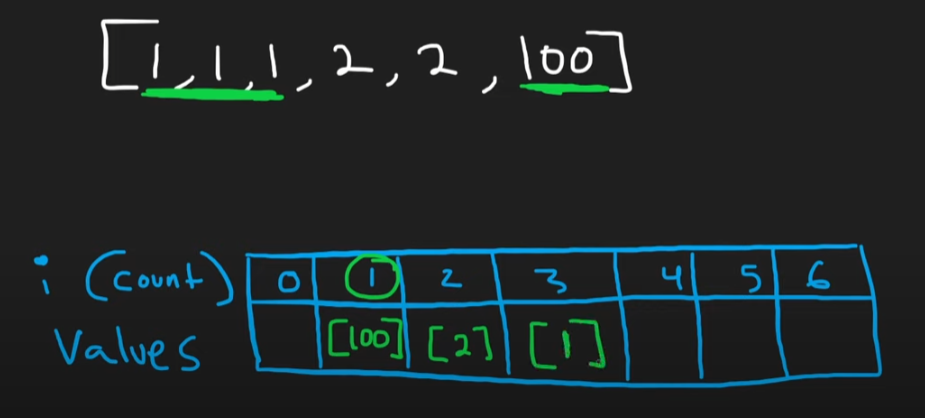 [1, 1, 1, 2, 2, 100]
i (count) 0 1 2 3 4 5 6
Values [100] [2] [1]